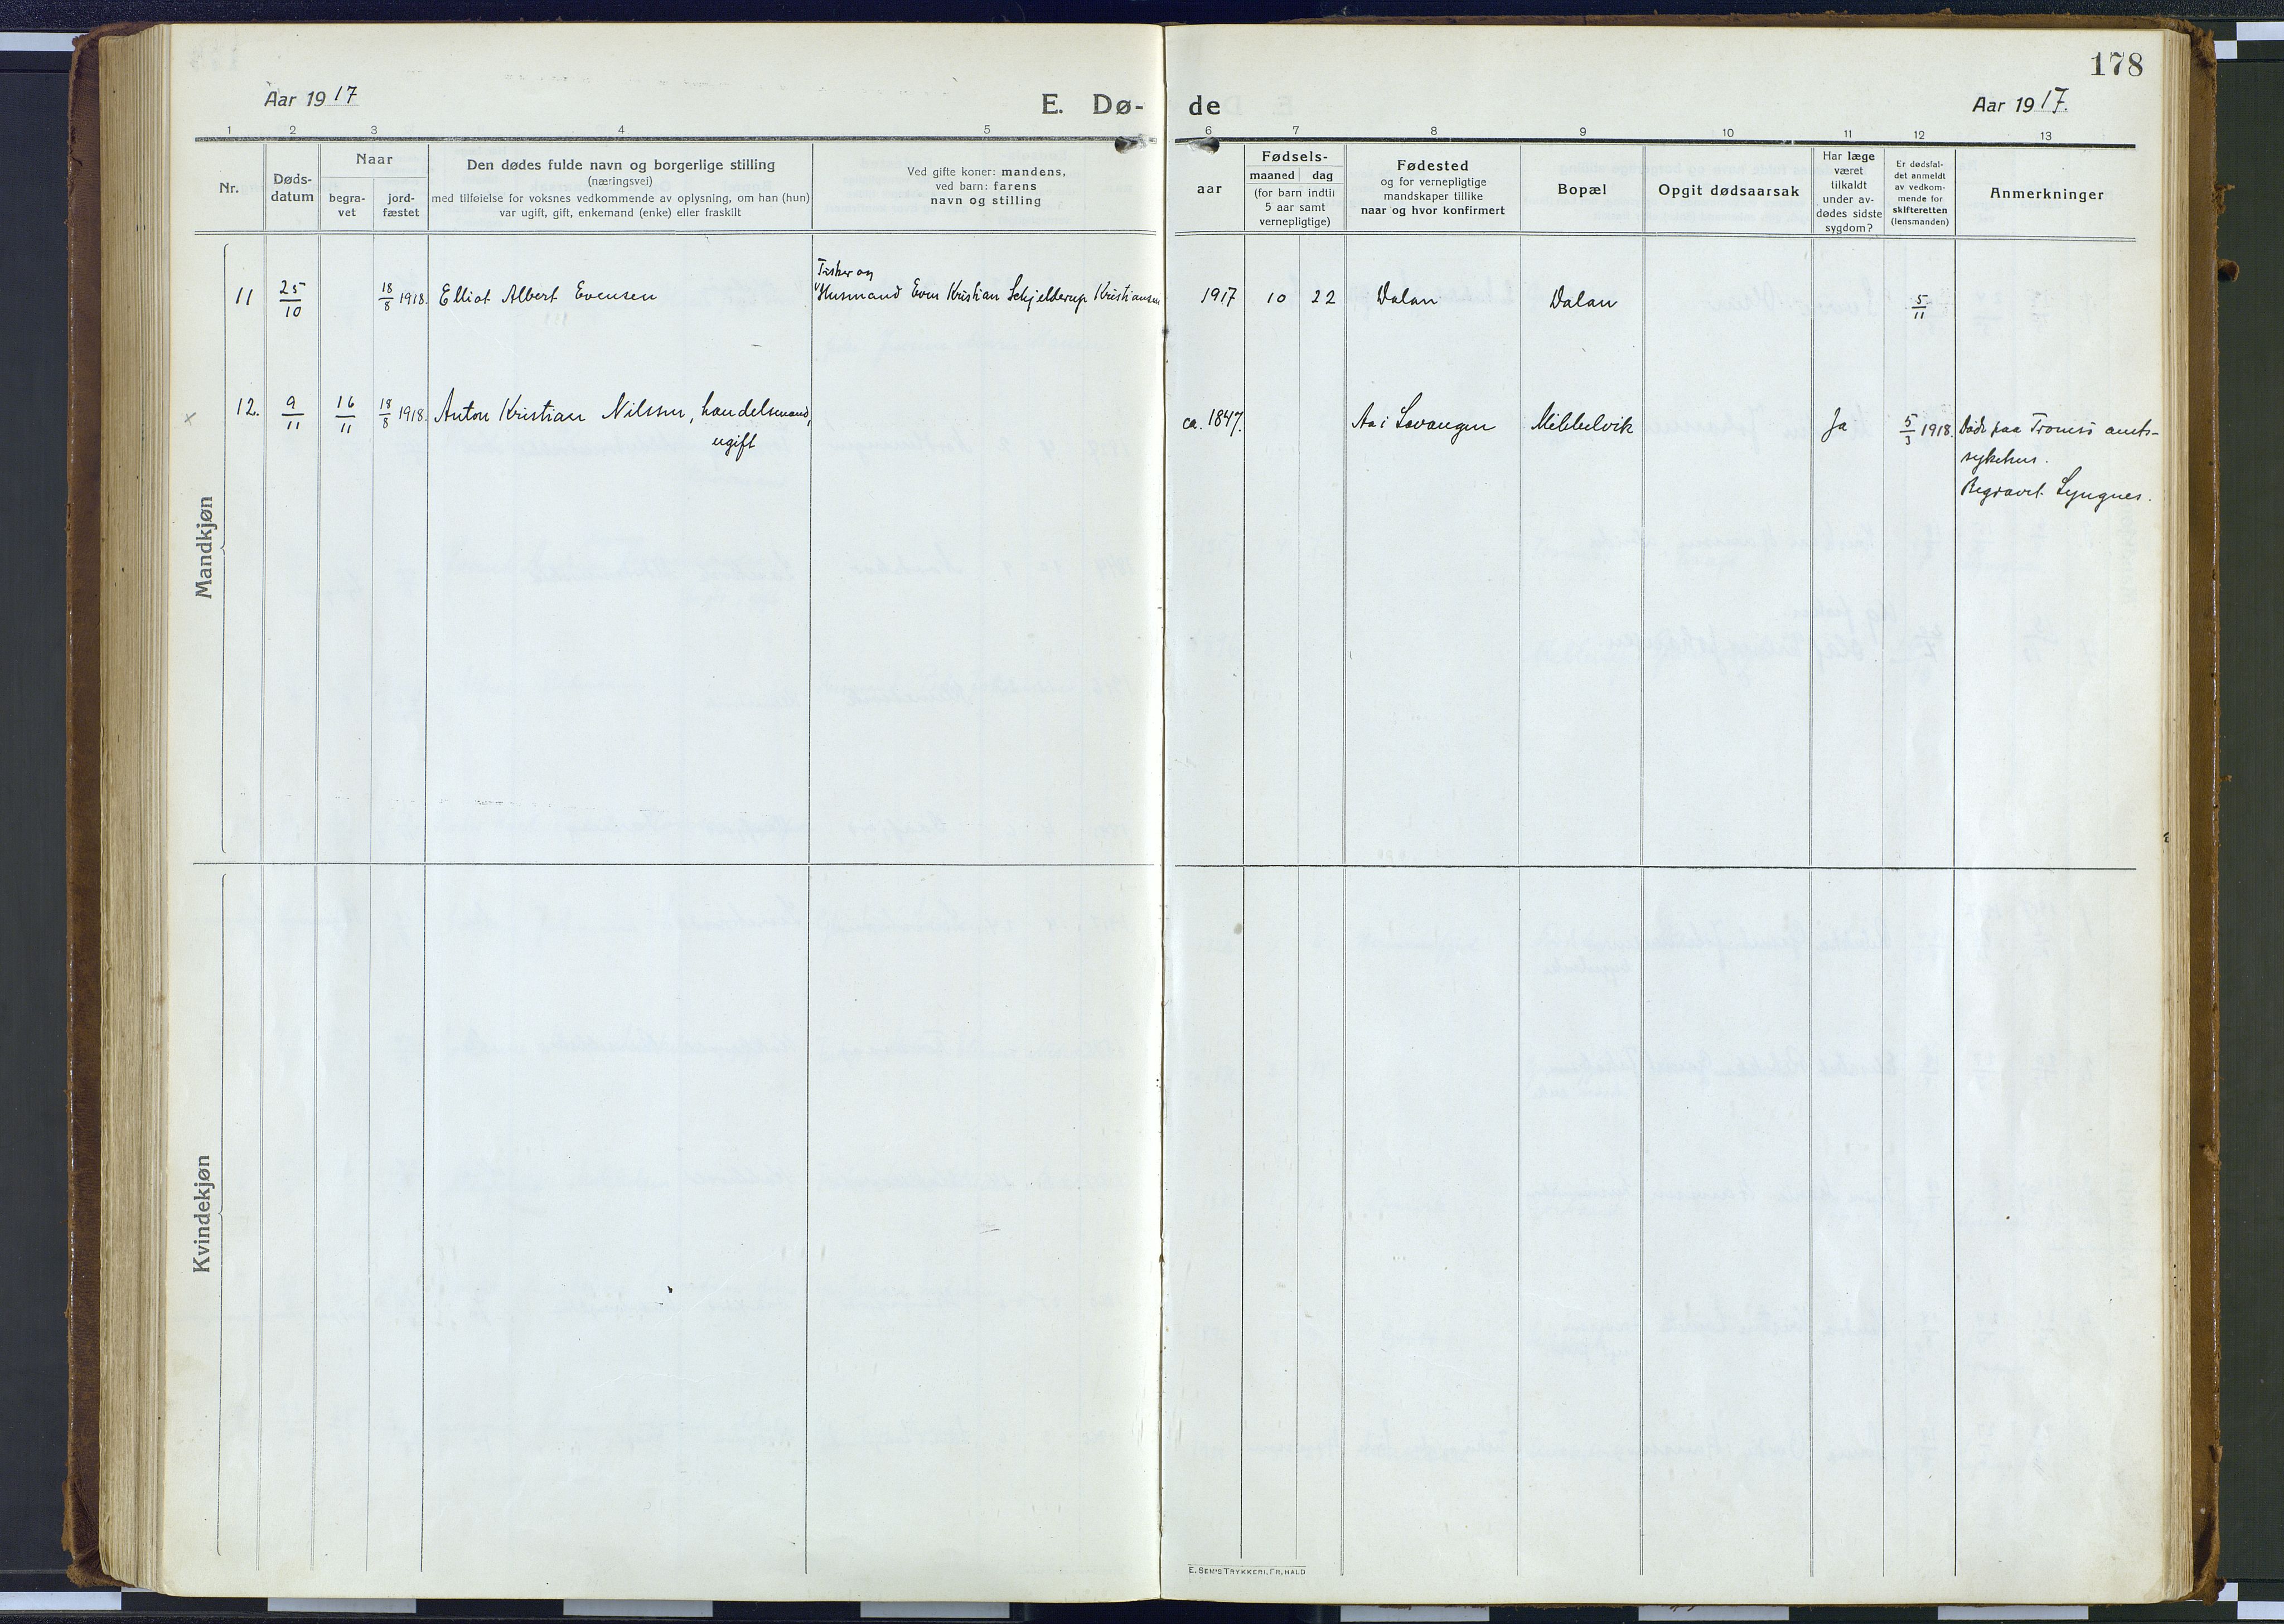 178
Aar 1917
E. Dø-
de
Aar 1917.
1 2 3 4 5 6 7 8 9 10 11 12 13
Nr.
Døds-
datum
Naar
begra-
vet
jord-
fæstet
Den dødes fulde navn og borgerlige stilling
(næringsvei)
med tilføielse for voksnes vedkommende av oplysning, om han (hun)
var ugift, gift, enkemand (enke) eller fraskilt
Ved gifte koner: mandens,
ved barn: farens
navn og stilling
aar
Fødsels-
maaned dag
(for barn indtil
5 aar samt
vernepligtige)
Fødested
og for vernepligtige
mandskaper tillike
naar og hvor konfirmert
Bopæl
Opgit dødsaarsak
Har læge
været
tilkaldt
under av-
dødes sidste
sygdom?
Er dødsfal-
det anmeldt
av vedkom-
mende for
skifteretten
(lensmanden)
Anmerkninger
Mandkjøn
Fisker og
11 25/10 18/8 1918. Elliot Albert Evensen Husmand Even Kristian Schjelderup Kristiansen 1917 10 22 Dalan Dalan 5/11
12. 9/11 16/11 18/8 1918. Anton Kristian Nilssen, handelsmand, ca. 1847. Aa i Lavangen Mikkelvik Ja 5/3 1918. Døde paa Tromsø amts-
ugift
sykehus.
Begravet Lyngnes.
Kvindekjøn
E. SEM'S TRYKKERI, FR.HALD